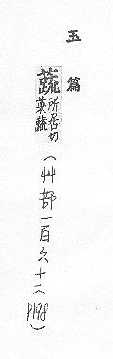 玉篇
蔬所居切
菜蔬
(艸部一百六十二
P198)